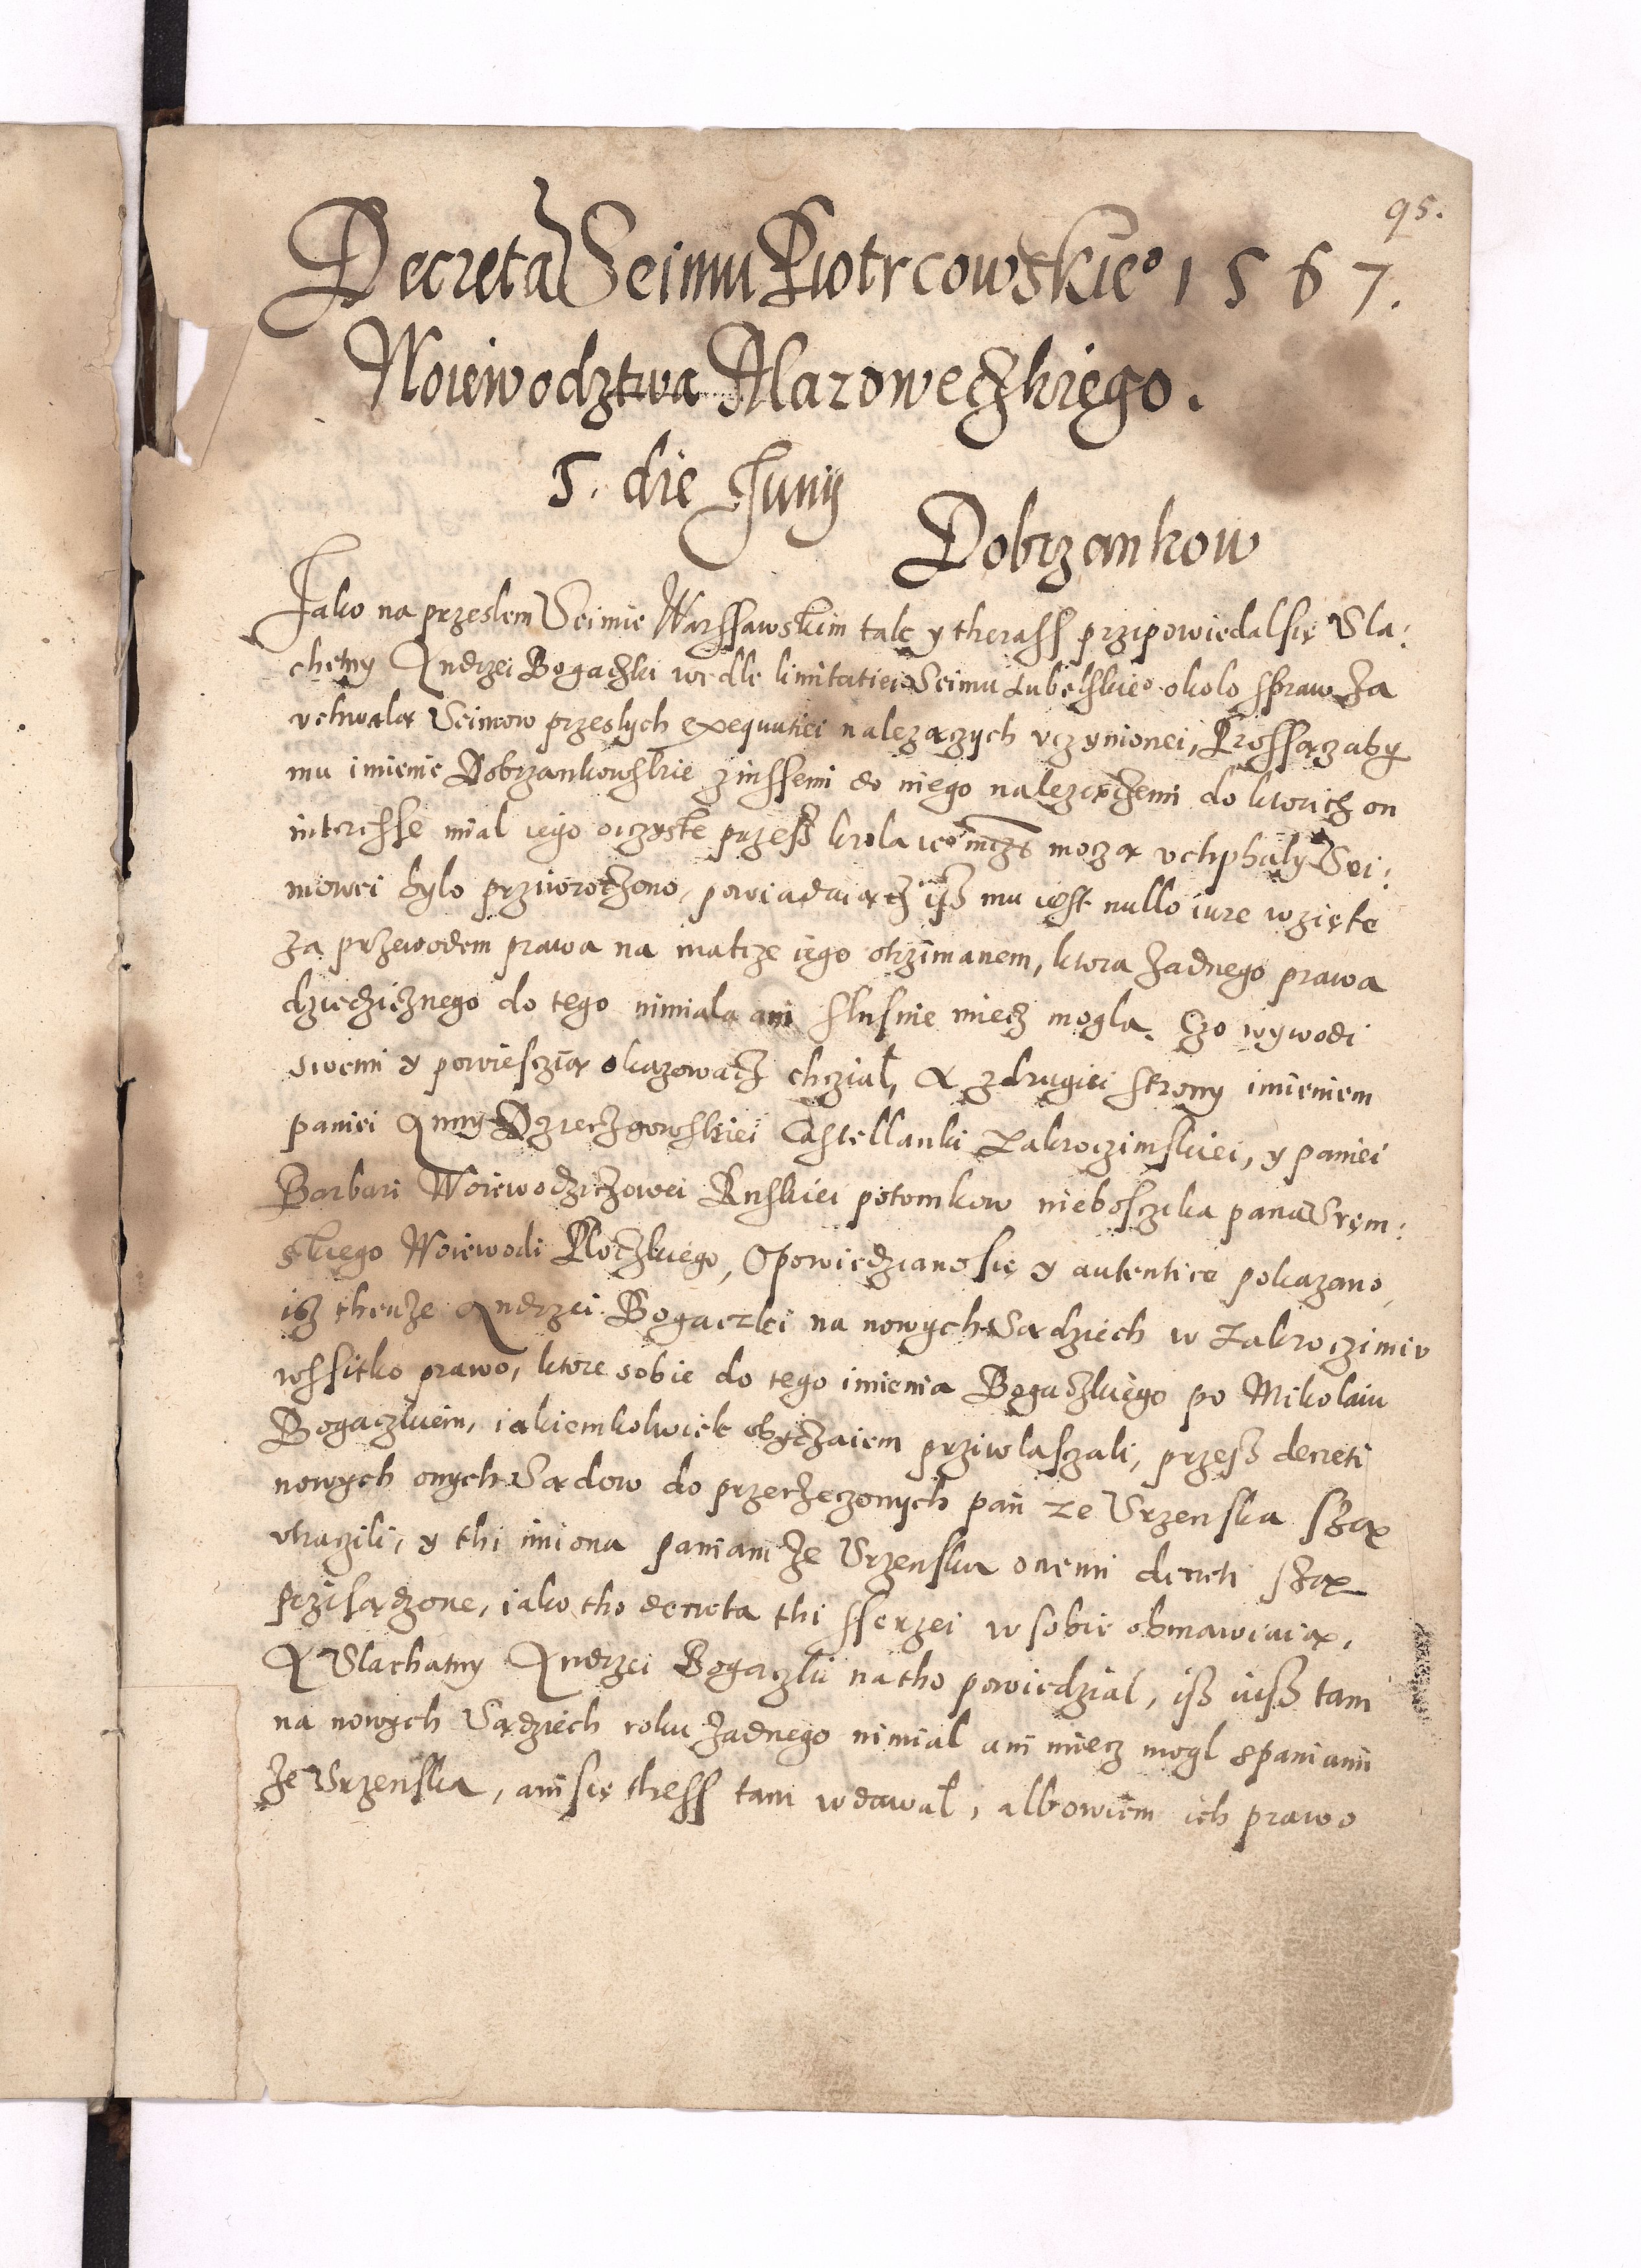 95.
Decreta Seimu Piotrcowskieº 1567.
Woiewodztwa Mazoweczkiego.
5. die Junij
Dobrzankow
Jako na przeslem Seimie Warssawskim tak y therass przipowiedalsię Sla:
chetny Andrzei Bogaczki wedle limitatiei Seimu Lubelskieº okolo spraw za
vchwalą Seimow przeslych exequutiei nalezączych vczynionei, Prossącz aby
mu imienie Dobrzankowskie z inssemi do niego nalezączemi do ktorich on
interesse mial iego oiczyste przess krola ieº mczi moczą vchphaly Sei:
mowei bylo przÿwroczono, powiadaiącz ysz mu iest nullo iure wzięte
za przewodem prawa na matcze iego otrzimanem, ktora zadnego prawa
dziedzicznego do tego nimiala ani slusnie miecz mogla. Czo wywodi
swemi y powiesczią okazowacz chczial, A z drugiei strony imieniem
paniei Anny Dzierzgowskiei Castellanki Zakroczimskiei, y paniei
Barbari Woiewodziczowei Ruskiei potomkow nieboszczika pana Srem:
skiego Woiewodi Ploczkiego, Opowiedziano się y autentice pokazano,
isz thenze Andrzei Bogaczki na nowych Sądziech w Zakroczimiu
wssitko prawo, ktore sobie do tego imienia Bogaczkiego po Mikolaiu
Bogaczkiem, iakiemkolwiek obyczaiem prziwlasczali, przesz decreti
nowych onych Sądow do przerzeczonych pań ze Srzenska sżą
vtraczili, y thi imiona paniam ze Srzenska onemi decreti sżą
przisądzone, iako tho decreta thi sserzei w sobie obmawiaią.
A Slachatny Andrzei Bogaczki na tho powiedzial, isz iusz tam
na nowych Sądziech roku zadnego nimial ani miecz mogl s paniami
ze Srzenska, ani się thess tam wdawal, albowiem ich prawo